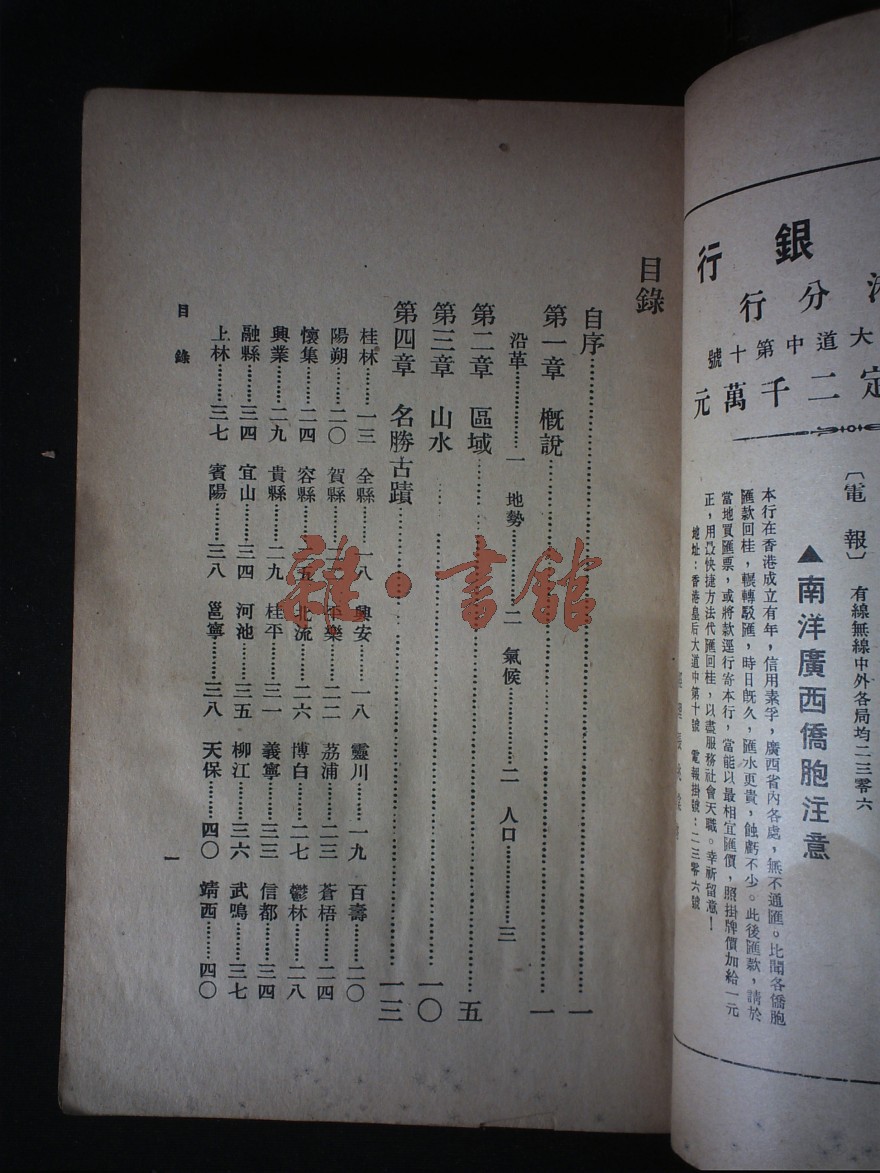 銀行
分行
大道中第十號
定二千萬元
〔電報〕 有線無線中外各局均二三零六
▲南洋廣西僑胞注意
本行在香港成立有年，信用素孚，廣西省內各處，無不通匯。比聞各僑胞
匯款回桂，輾轉駁匯，時日旣久，匯水更貴，蝕虧不少。此後匯款，請於
當地買匯票，或將款逕行寄本行，當能以最相宜匯價，照掛牌價加給一元
正，用最快捷方法代匯回桂，以盡服務社會天職。幸祈留意！
地址：香港皇后大道中第十號 電報掛號：二三零六號
目錄
自序……一
第一章 槪說……一
沿革……一 地勢……二 氣候……二 人口……三
第二章 區域……五
第三章 山水……一〇
第四章 名勝古蹟……一三
桂林……一三 全縣……一八 興安……一八 靈川……一九 百壽……二〇
陽朔……二〇 賀縣 平樂……二二 荔浦……二三 蒼梧……二四
懷集……二四 容縣 北流……二六 博白……二七 鬱林……二八
興業……二九 貴縣……二九 桂平……三一 義寧……三三 信都……三四
融縣……三四 宜山……三四 河池……三五 柳江……三六 武鳴……三七
上林……三七 賓陽……三八 邕寧……三八 天保……四〇 靖西……四〇
目錄
一
雜·書館